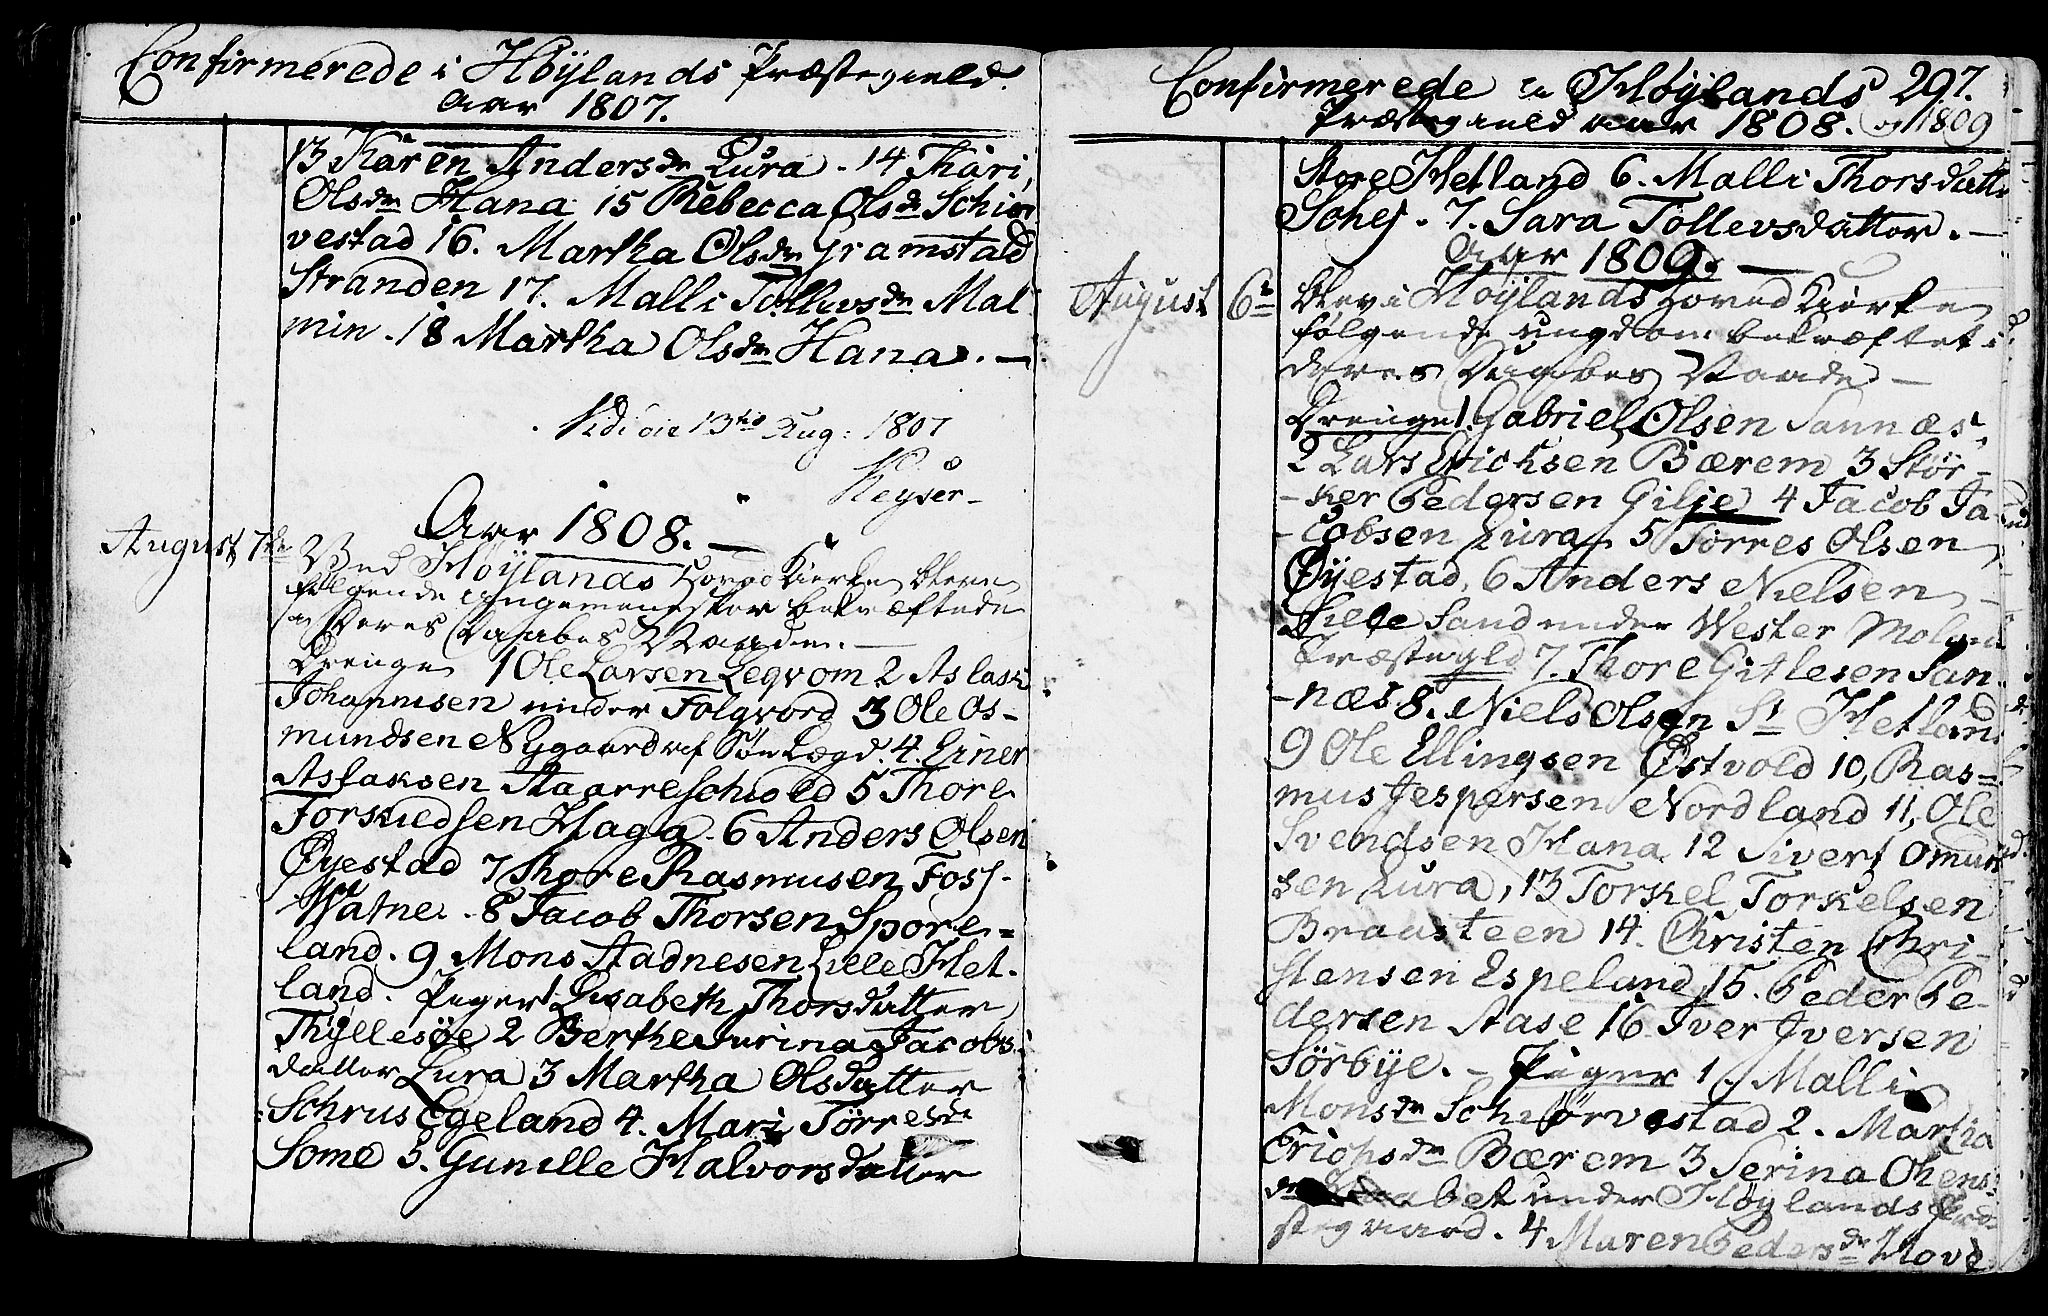 Confirmerede i Höylands Præstegield.
Aar 1807.
13 Karen Andersdr Lura. 14 Kari,
Olsdr Hana 15 Rebecca Olsdr Schiør
vestad 16. Martha Olsdr Gramstad
Stranden 17. Malli Tollevsdr Mal
min. 18 Martha Olsdr Hana. —
Vidi die 13tio Aug: 1807
Keyser
Aar 1808. —
August 7de Ved Höylands Hoved Kierke bleve
følgende unge mennesker bekræftede
i Deres Daabes Naade. —
Drenge 1 Ole Larsen Leqvom 2 Aslak
Johannesen under Folqvord 3 Ole Os-
mundsen Nygaard af Lægd. 4. Einer
Aslaksen Staarreschiold 5 Thore
Torkildsen Haga. 6 Anders Olsen
Øyestad 7 Thore Rasmusen Foss-
Watne. 8 Jacob Thorsen Spore=
land. 9 Mons Stadnesen Lille Het-
land. Piger 1 Lisabeth Thorsdatter
Thyllesöe 2 Berthe Surina Jacobs
datter Lura 3 Martha Olsdatter
Schrus Egeland 4. Mari Törresdr
Some 5. Gunille Halvorsdatter
Confirmerede i Höylands 297.
Præstegield aar 1808. og 1809
Store Hetland 6. Malli Thorsdatter
Schej. 7. Sara Tollevsdatter. —
Aar 1809. —
August 6te blev i Höylands Hoved Kierke
følgende ungdom bekræftet i
deres Daabes Naade —
Drenge 1. Gabriel Olsen Sannæs,
2 Lars Erichsen Bærem 3 Stör-
-ker Pedersen Gilje 4 Jacob Ja-
-cobsen Lura 5 Törres Olsen
Øyestad, 6 Anders Nielsen
Lille Sand under Wester Molands
Præstegld 7. Thore Gitlesen San-
-næs 8. Niels Olsen St Hetland
9 Ole Ellingsen Østvold 10, Ras=
mus Jespersen Nordland 11, Ole
Svendsen Hana 12 Sivert Omund
sen Lura, 13 Torkel Torkelsen
Braasteen 14. Christen Chri-
stensen Espeland 15. Peder Pe-
dersen Aase 16 Iver Iversen
Sörbye. — Piger 1. Malli
Monsdr Schiörvestad 2. Martha
Erichsdr Bærem 3 Serina Ohens
under Höylands Præ-
stegaard. 4 Maren Pedersdr Hove